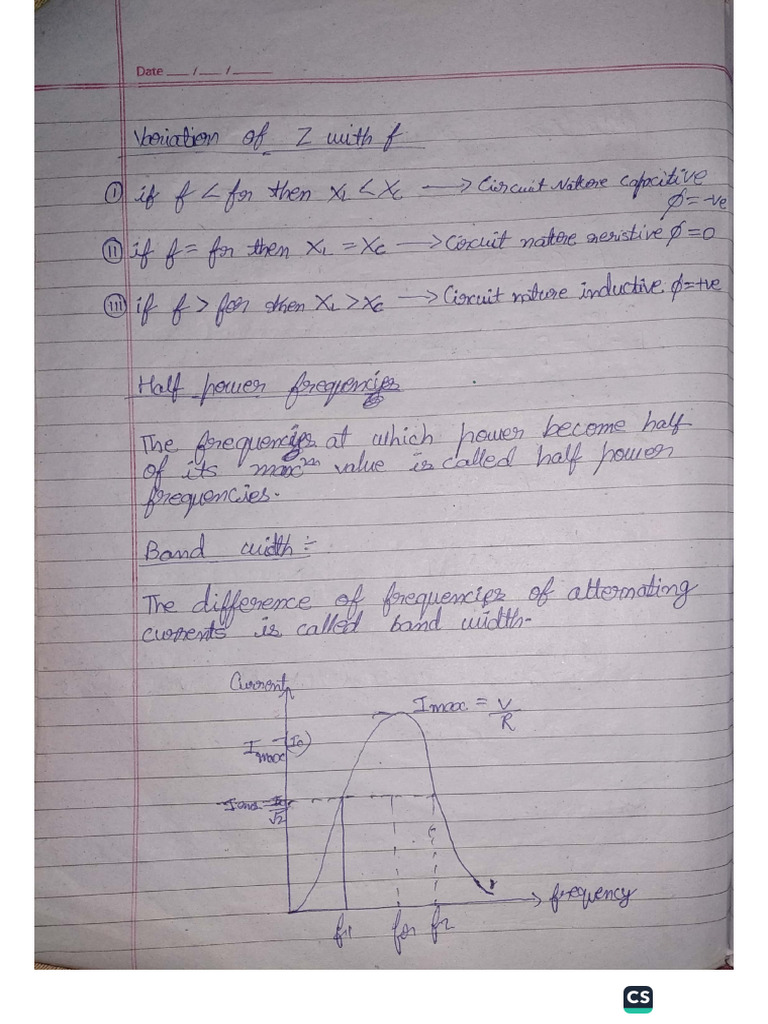 Date __ / __ / ____
Variation of Z with f
(I) if f < fr then XL < XC → Circuit Nature capcitive
φ = -ve
(II) if f = fr then XL = XC → Circuit nature resistive φ = 0
(III) if f > fr then XL > XC → Circuit nature inductive φ = +ve
Half power frequencies
The frequencies at which power become half
of its maxᵐ value is called half power
frequencies.
Band width ÷
The difference of frequencies of alternating
currents is called band width.
Current
Imax = V/R
Imax (Io)
Io/√2
f1 fr f2
frequency
CS